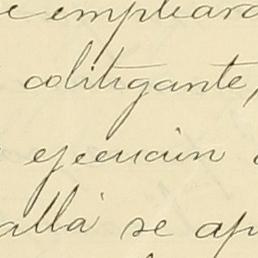 e empleara
colitigante,
ejecucion
allá se ap